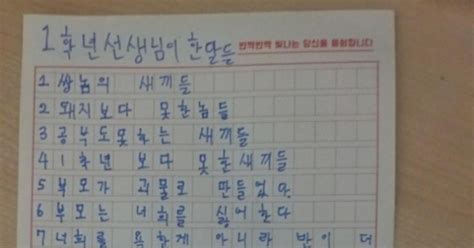 1학년선생님이 한말들
반짝반짝 빛나는 당신을 응원합니다
1 쌍놈의 새끼들
2 돼지보다 못한놈들
3 공부도못하는 새끼들
4 1학년 보다 못한새끼들
5 부모가 괴물로 만들었어
6 부모는 너희를 싫어한다
7 너희를 욕한게 아니라 밥이 더